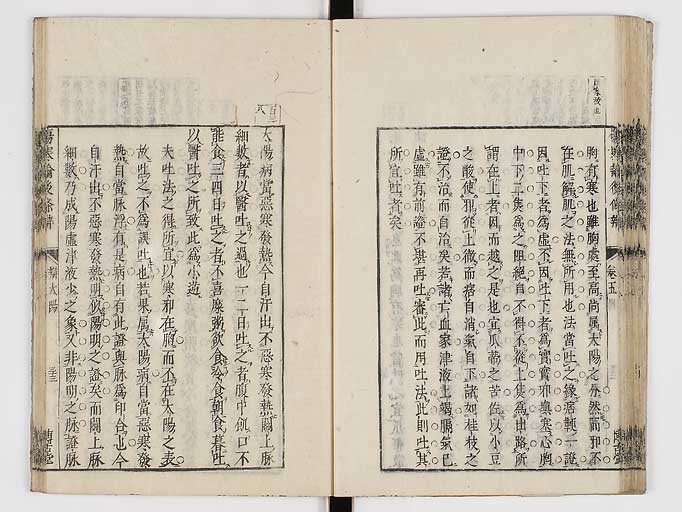 胸有寒也雖胸處至高尚属太陽之界然而邪不
在肌解肌之法無所用也法當吐之緣痞鞕一證
因吐下者為虚不因吐下者為實實邪填塞心胸
中下二焦為之阻絕自不得不從上焦為出路所
謂在上者因而越之是也宜瓜蔕之苦佐以小豆
之酸使邪從上徹而痞自消氣自下諸如桂枝之
證不治而自治矣若諸亡血家津液上竭膈氣已
虚雖有前證不堪再吐審此而用吐法此則吐其
所宜吐者矣
卷五
太陽病當惡寒發熱今自汗出不惡寒發熱關上脉
細數者以醫吐之過也一二日吐之者腹中飢口不
能食三四日吐之者不喜糜粥欲食冷食朝食暮吐
以醫吐之所致此為小逆
夫吐法之得所宜以寒邪在胸而不在太陽之表
故吐之不為誤吐也若果属太陽病自當惡寒發
熱自當脉浮有是病自有此證與脉為印合也今
自汗出不惡寒發熱明似陽明之證矣而關上脉
細數乃成陽虚津液少之象又非陽明之脉證脉
傷寒論後條辨
辨太陽